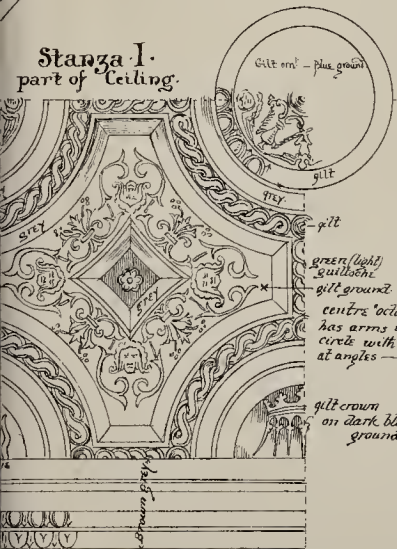 Stanza·I·
part of Ceiling.
Gilt ornt – Blue ground
gilt
grey.
GREY
gilt
green (light)
guillochi
gilt ground
GREY
centre "octa
has arms
circle with
at angles –
gilt crown
on dark bl
ground
Grey